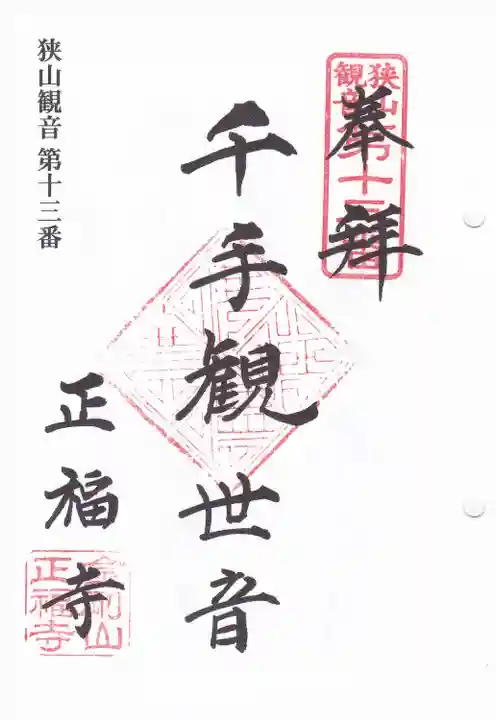 奉拝
狭山
観音
第十三番
千手観世音
狭山観音 第十三番
正福寺
金剛山
正福寺